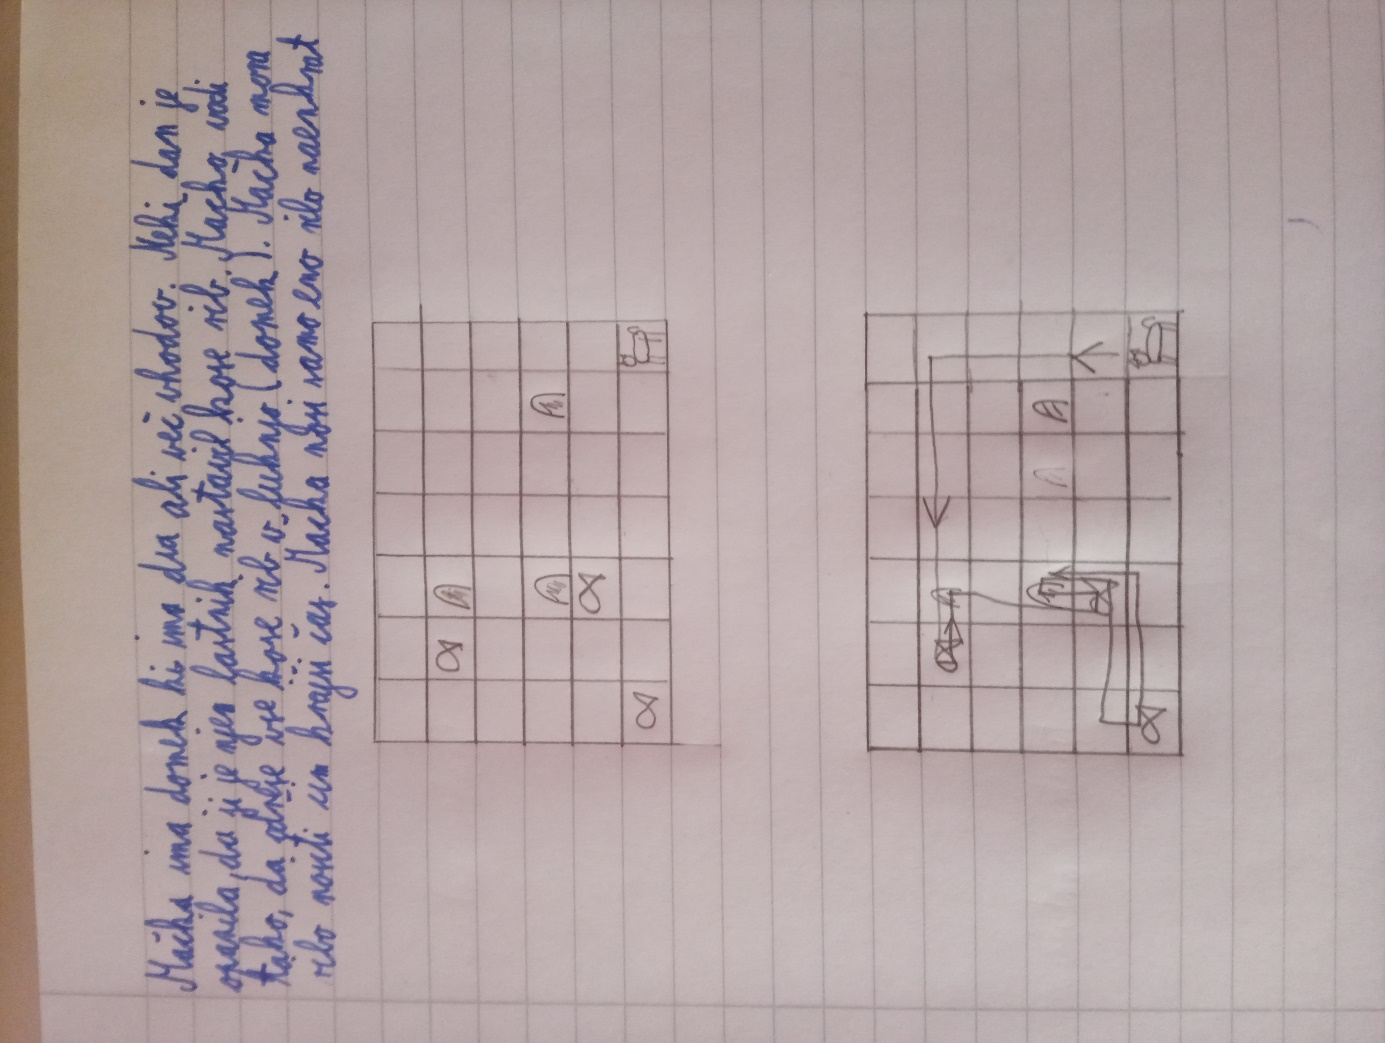 Mačka ima domek ki ima dva ali več vhodov. Neki dan je
opazila, da ji je njen lastnik nastavil kose rib. Mačko vodi
tako, da odnese vse kose rib v luknjo (domek). Mačka mora
ribo nositi čim krajši čas. Mačka nosi samo eno ribo naenkrat